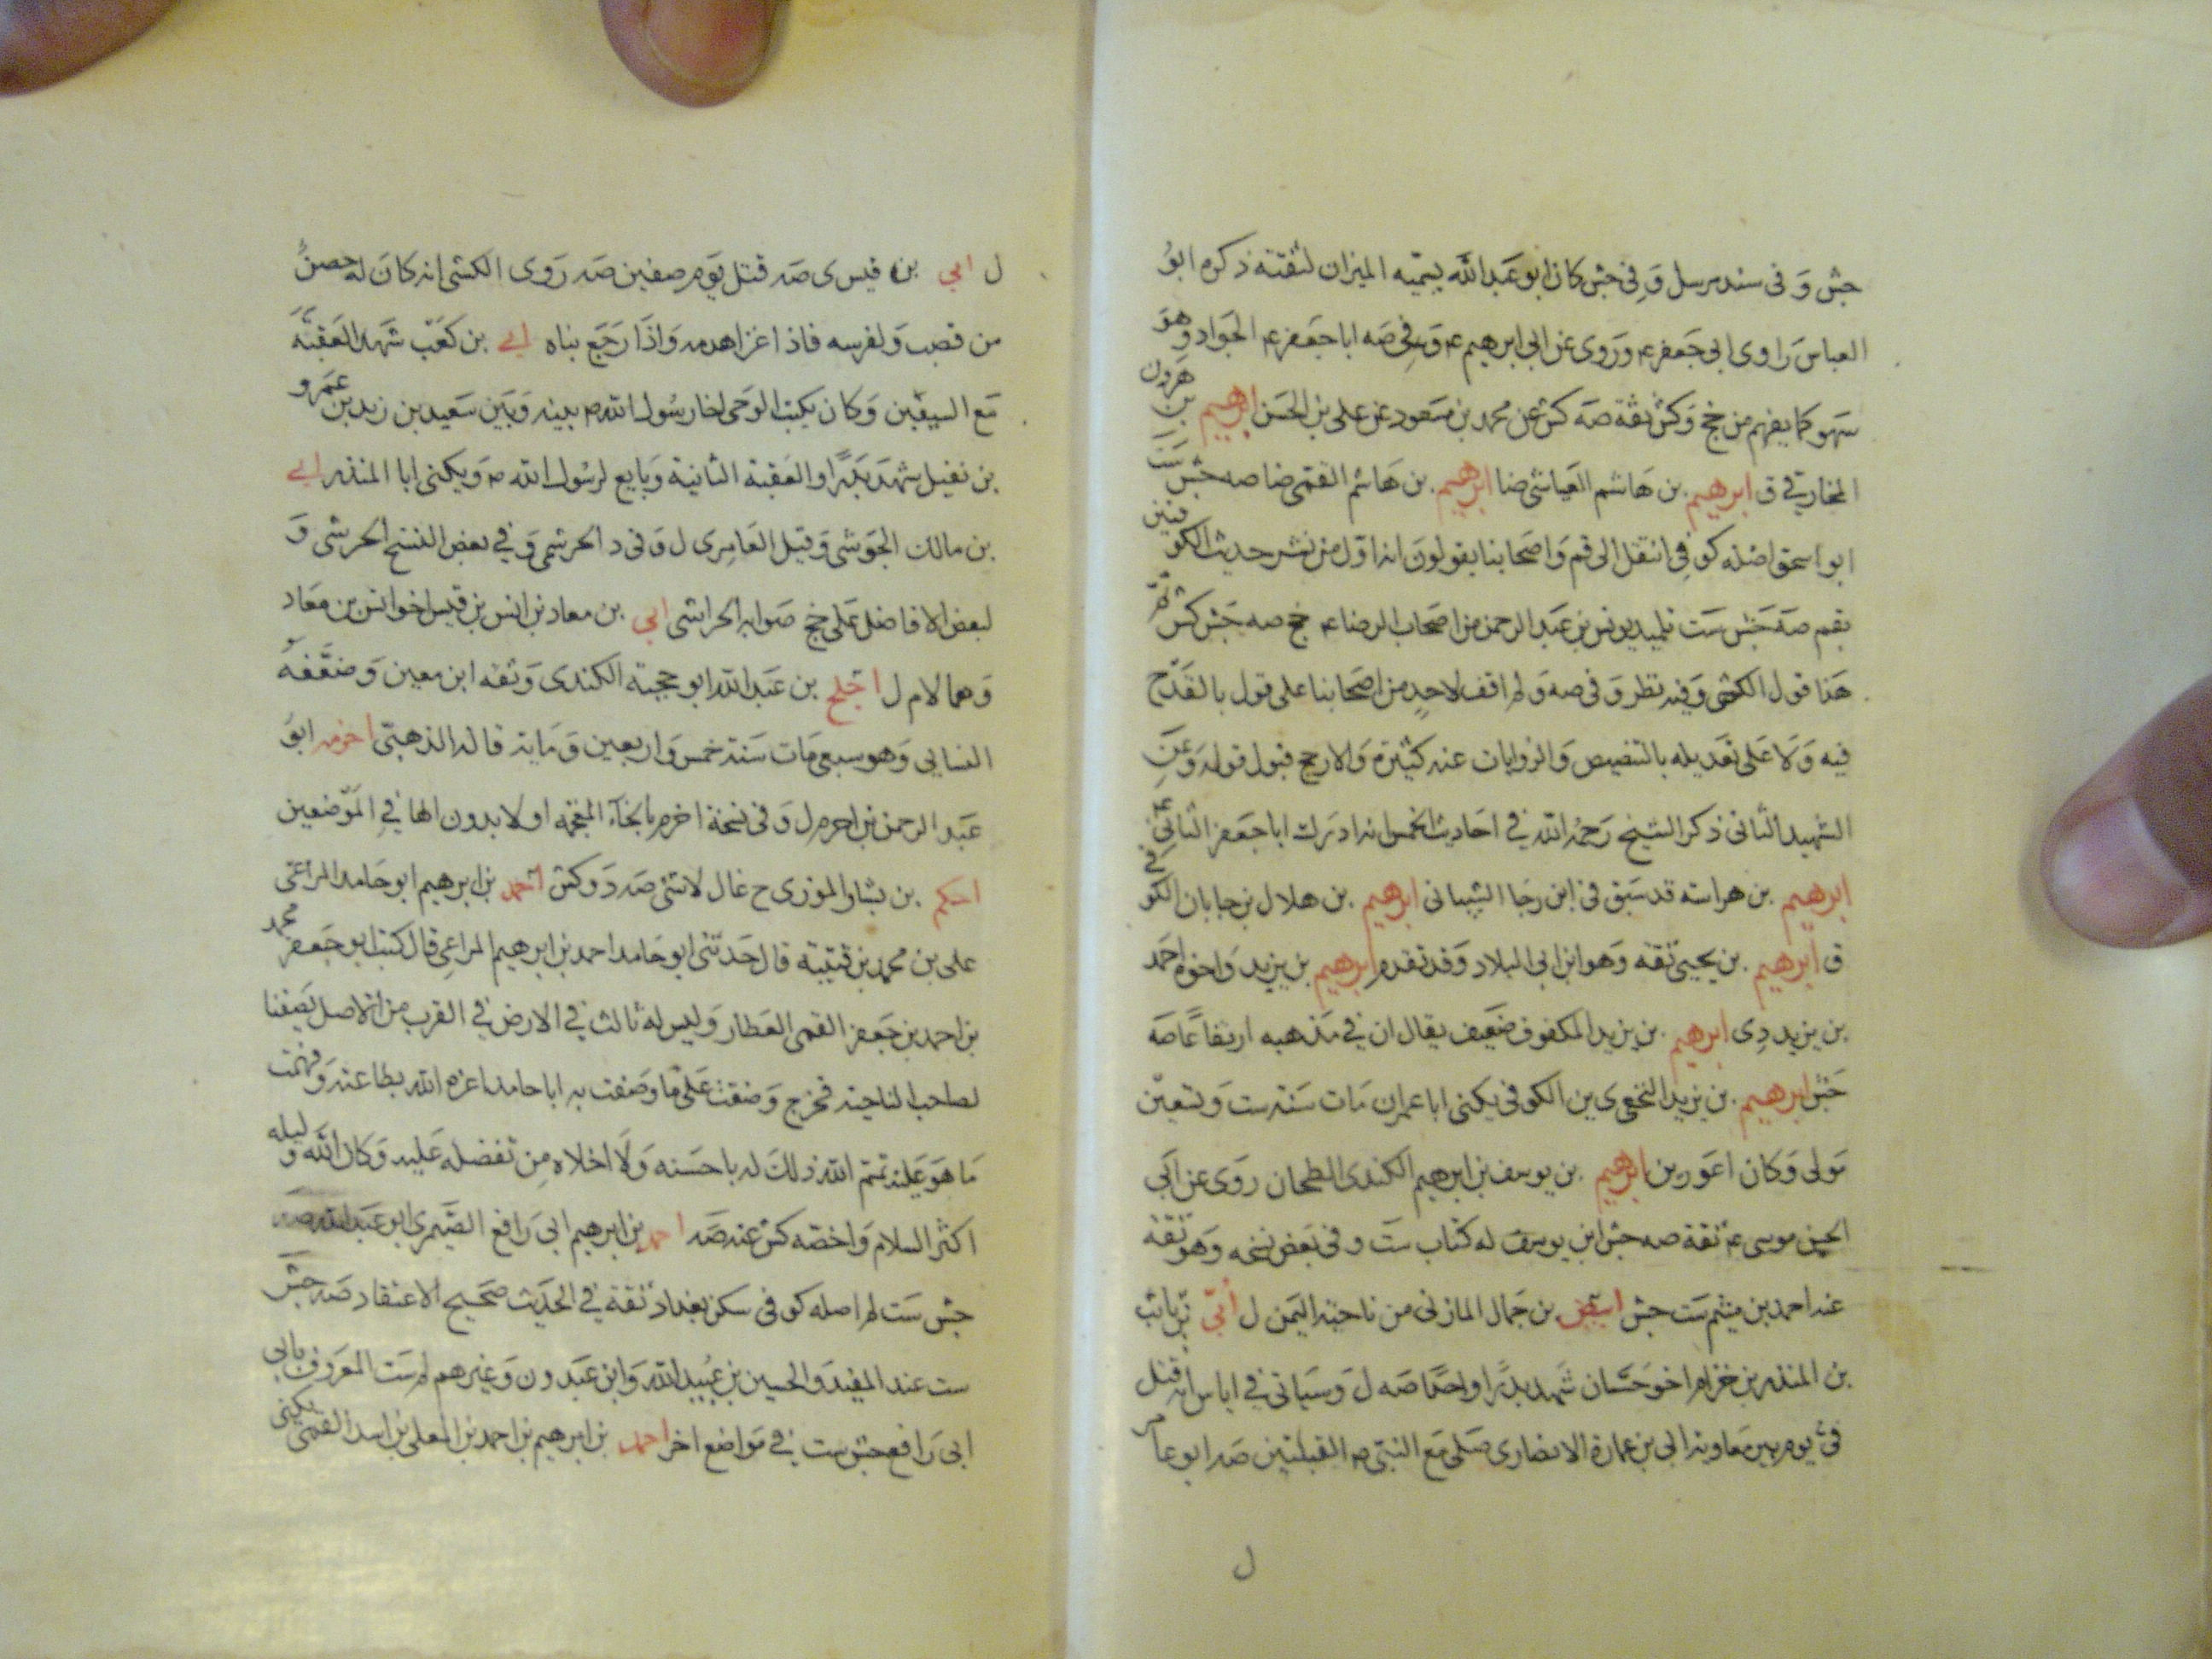 جش وفى سند مرسل وفى جش كان ابو عبد الله يسميه الميزان لثقته ذكره ابو
العباس راوى ابى جعفر ع وروى عن ابى ابرهيم ع وفى صه ابا جعفر ع الجواد وهو
سهو كما يفهم من جخ وكش ثقة صه كش عن محمد بن مسعود عن على بن الحسن ابرهيم بن هرون
الخارفى ق ابرهيم بن هاشم العباسى ضا ابرهيم بن هاشم القمى ضا صه جش ست
ابو اسحق اصله كوفى انتقل الى قم واصحابنا يقولون انه اول من نشر حديث الكوفيين
بقم صه جش ست تلميد يونس بن عبد الرحمن من اصحاب الرضا ع جخ صه جش كش
هذا قول الكشى وفيه نظر وفى صه ولم اقف لاحد من اصحابنا على قول بالقدح
فيه ولا على تعديله بالتنصيص والروايات عنه كثيرة والارجح قبول قوله وعن
الشهيد الثانى ذكر الشيخ رحمه الله فى احاديث الخمس انه ادرك ابا جعفر الثانى ع
ابرهيم بن هراسه قد سبق فى ابن رجا الشيبانى ابرهيم بن هلال بن جابان الكوفى
ق ابرهيم بن يحيى ثقه وهو ابن ابى البلاد وقد تقدم ابرهيم بن يزيد واخوه احمد
بن يزيد دى ابرهيم بن يزيد المكفوف ضعيف يقال ان فى مذهبه ارتفاعا صه
جش ابرهيم بن يزيد النخعى ى ين الكوفى يكنى ابا عمران مات سنة ست وتسعين
مولى وكان اعور ين ابرهيم بن يوسف بن ابرهيم الكندى الطحان روى عن ابى
الحسن موسى ع ثقة صه جش ابن يوسف له كتاب ست وفى بعض نسخه وهو ثقة
عنه احمد بن ميثم ست جش ابيض بن جمال المازنى من ناحية اليمن ل ابى بن ثابت
بن المنذر بن خزام اخو حسان شهد بدرا واحدا صه ل وسياتى فى اياس انه قتل
فى يوم بير معاوية ابى بن عمارة الانصارى صلى مع النبى ص القبلتين صه ابو عا
ل
ل ابى بن قيس ى صه قتل يوم صفين صه روى الكشى انه كان له حصن
من قصب ولفرسه فاذا غزا هدمه واذا رجع بناه ابى بن كعب شهد العقبة
مع السبعين وكان يكتب الوحى اخا رسول الله ص بينه وبين سعيد بن زيد بن عمرو
بن نفيل شهد بدرا والعقبة الثانية وبايع لرسول الله ص ويكنى ابا المنذر ابى
بن مالك الجوشى وقيل العامرى ل وفى د الحرشى وفى بعض النسخ الحرشى و
لبعض الافاضل على جخ صوابه الحرانشى ابى بن معاذ بن انس بن قيس اخو انس بن معاذ
وهما لام ل اجلح بن عبد الله ابو حجية الكندى وثقه ابن معين وضعفه
النسايى وهو سبعى مات سنة خمس واربعين ومايه قاله الذهبى اخرمه ابو
عبد الرحمن بن اخرم ل وفى نسخة اخرم بالخاء المعجمه اولا بدون الها فى الموضعين
احكم بن بشار المروزى ح غال لاشئ صه د وكش احمد بن ابرهيم ابو حامد المراغى
على بن محمد بن قتيبة قال حدثنى ابو حامد احمد بن ابرهيم المراغى قال كتب ابو جعفر محمد
بن احمد بن جعفر القمى العطار وليس له ثالث فى الارض فى القرب من الاصل يصفنا
لصاحب الناحية فخرج وقفت على ما وصفت به ابا حامد اعزه الله بطاعته وفهمت
ما هو عليه تمم الله ذلك له باحسنه ولا اخلاه من تفضله عليه وكان الله وليه
اكثر السلام واخصه كش عنه صه احمد بن ابرهيم ابى رافع الصيمرى ابو عبد الله صه
جش ست لم اصله كوفى سكن بغداد ثقة فى الحديث صحيح الاعتقاد صه جش
ست عنه المفيد والحسين بن عبيد الله وابن عبدون وغيرهم لم ست المعروف بابى
ابى رافع جش ست فى مواضع اخر احمد بن ابرهيم بن احمد بن المعلى بن اسد القمى يكنى